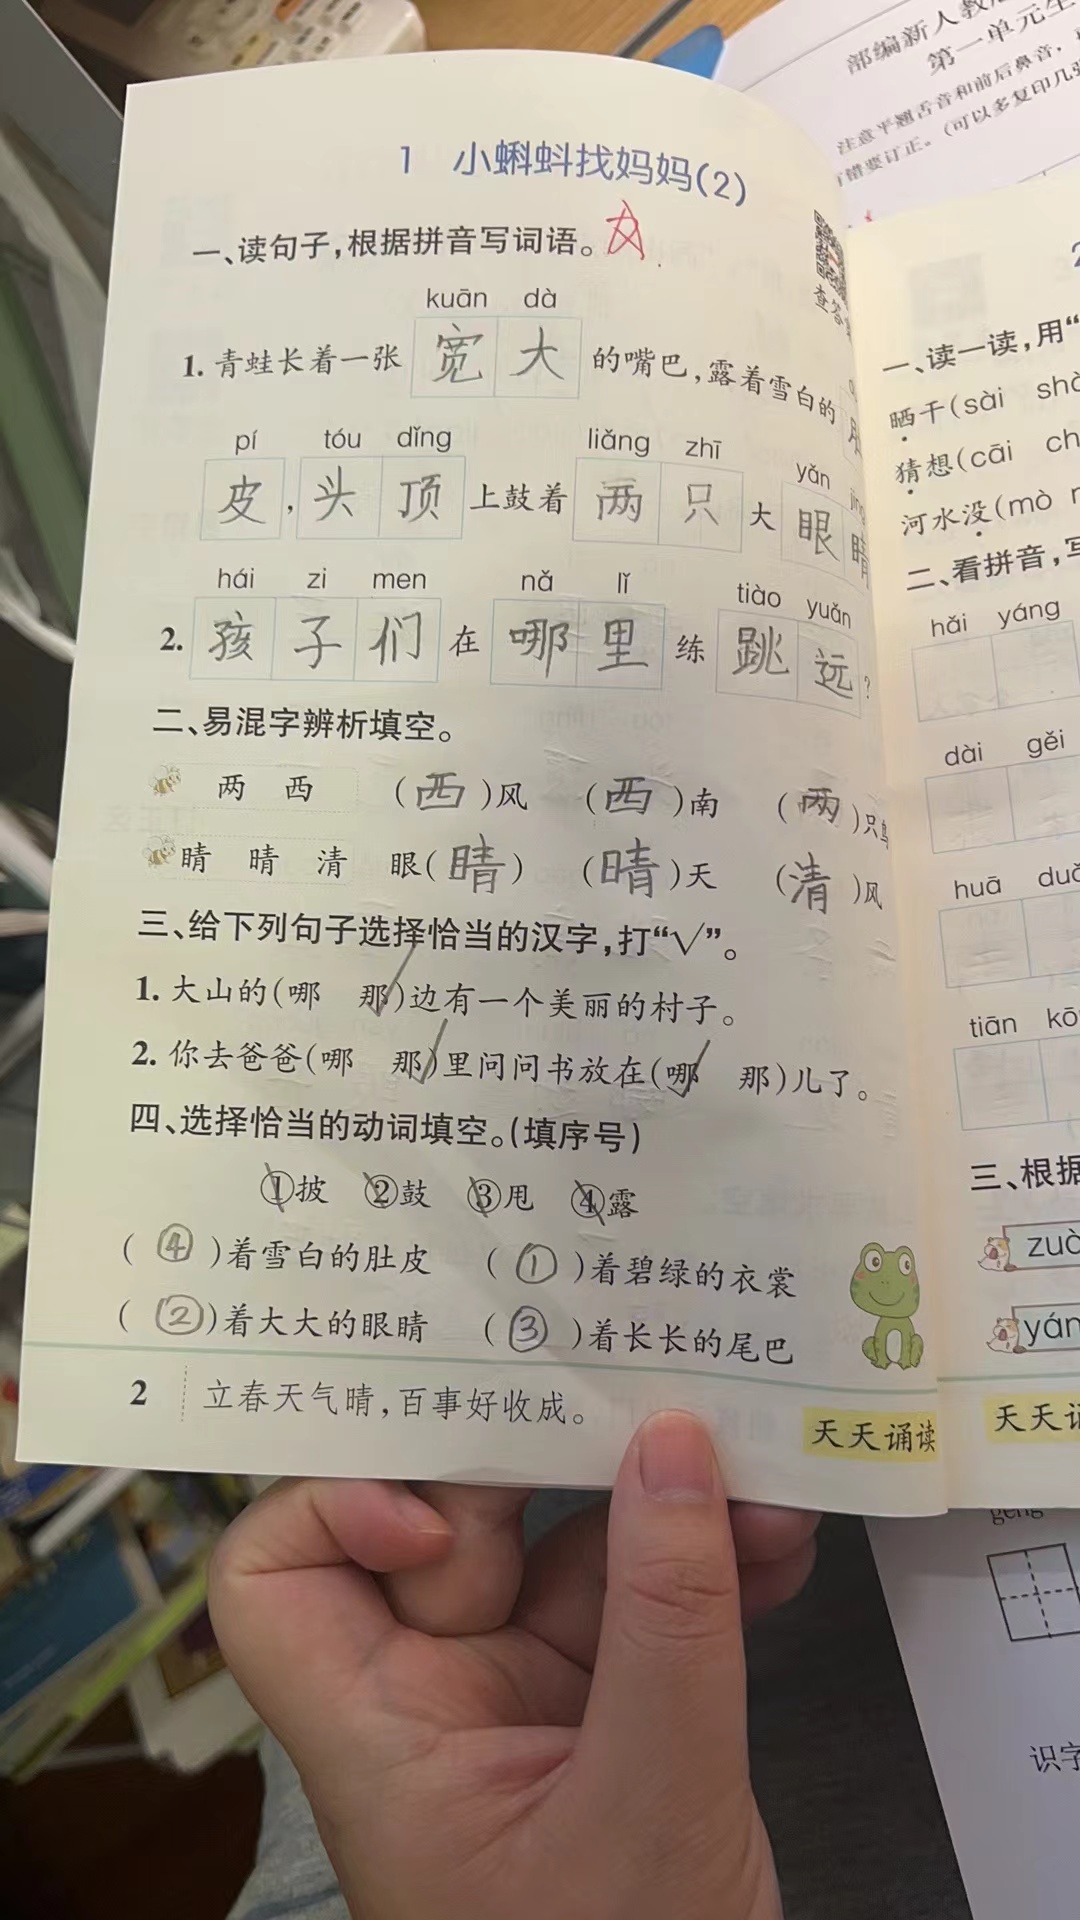 部编新人教
第一单元生
注意平翘舌音和前后鼻音，
错要订正。(可以多复印几张
1 小蝌蚪找妈妈(2)
查答
一、读句子，根据拼音写词语。
kuān dà
1. 青蛙长着一张 宽大 的嘴巴，露着雪白的
pí tóu dǐng liǎng zhī yǎn jing
皮，头顶 上鼓着 两只 大 眼睛
hái zi men nǎ lǐ tiào yuǎn
2. 孩子们 在 哪里 练 跳远？
二、易混字辨析填空。
两 西 (西)风 (西)南 (两)只鸟
睛 晴 清 眼(睛) (晴)天 (清)风
三、给下列句子选择恰当的汉字，打“√”。
1. 大山的(哪 那)边有一个美丽的村子。
2. 你去爸爸(哪 那)里问问书放在(哪 那)儿了。
四、选择恰当的动词填空。(填序号)
①披 ②鼓 ③甩 ④露
(④)着雪白的肚皮 (①)着碧绿的衣裳
(②)着大大的眼睛 (③)着长长的尾巴
2 立春天气晴，百事好收成。
天天诵读
2
一、读一读，用“
晒干(sài shà
猜想(cāi ch
河水没(mò
二、看拼音，写
hǎi yáng
dài gěi
huā duǒ
tiān kō
三、根据
zuò
yán
天天诵
gēng
识字